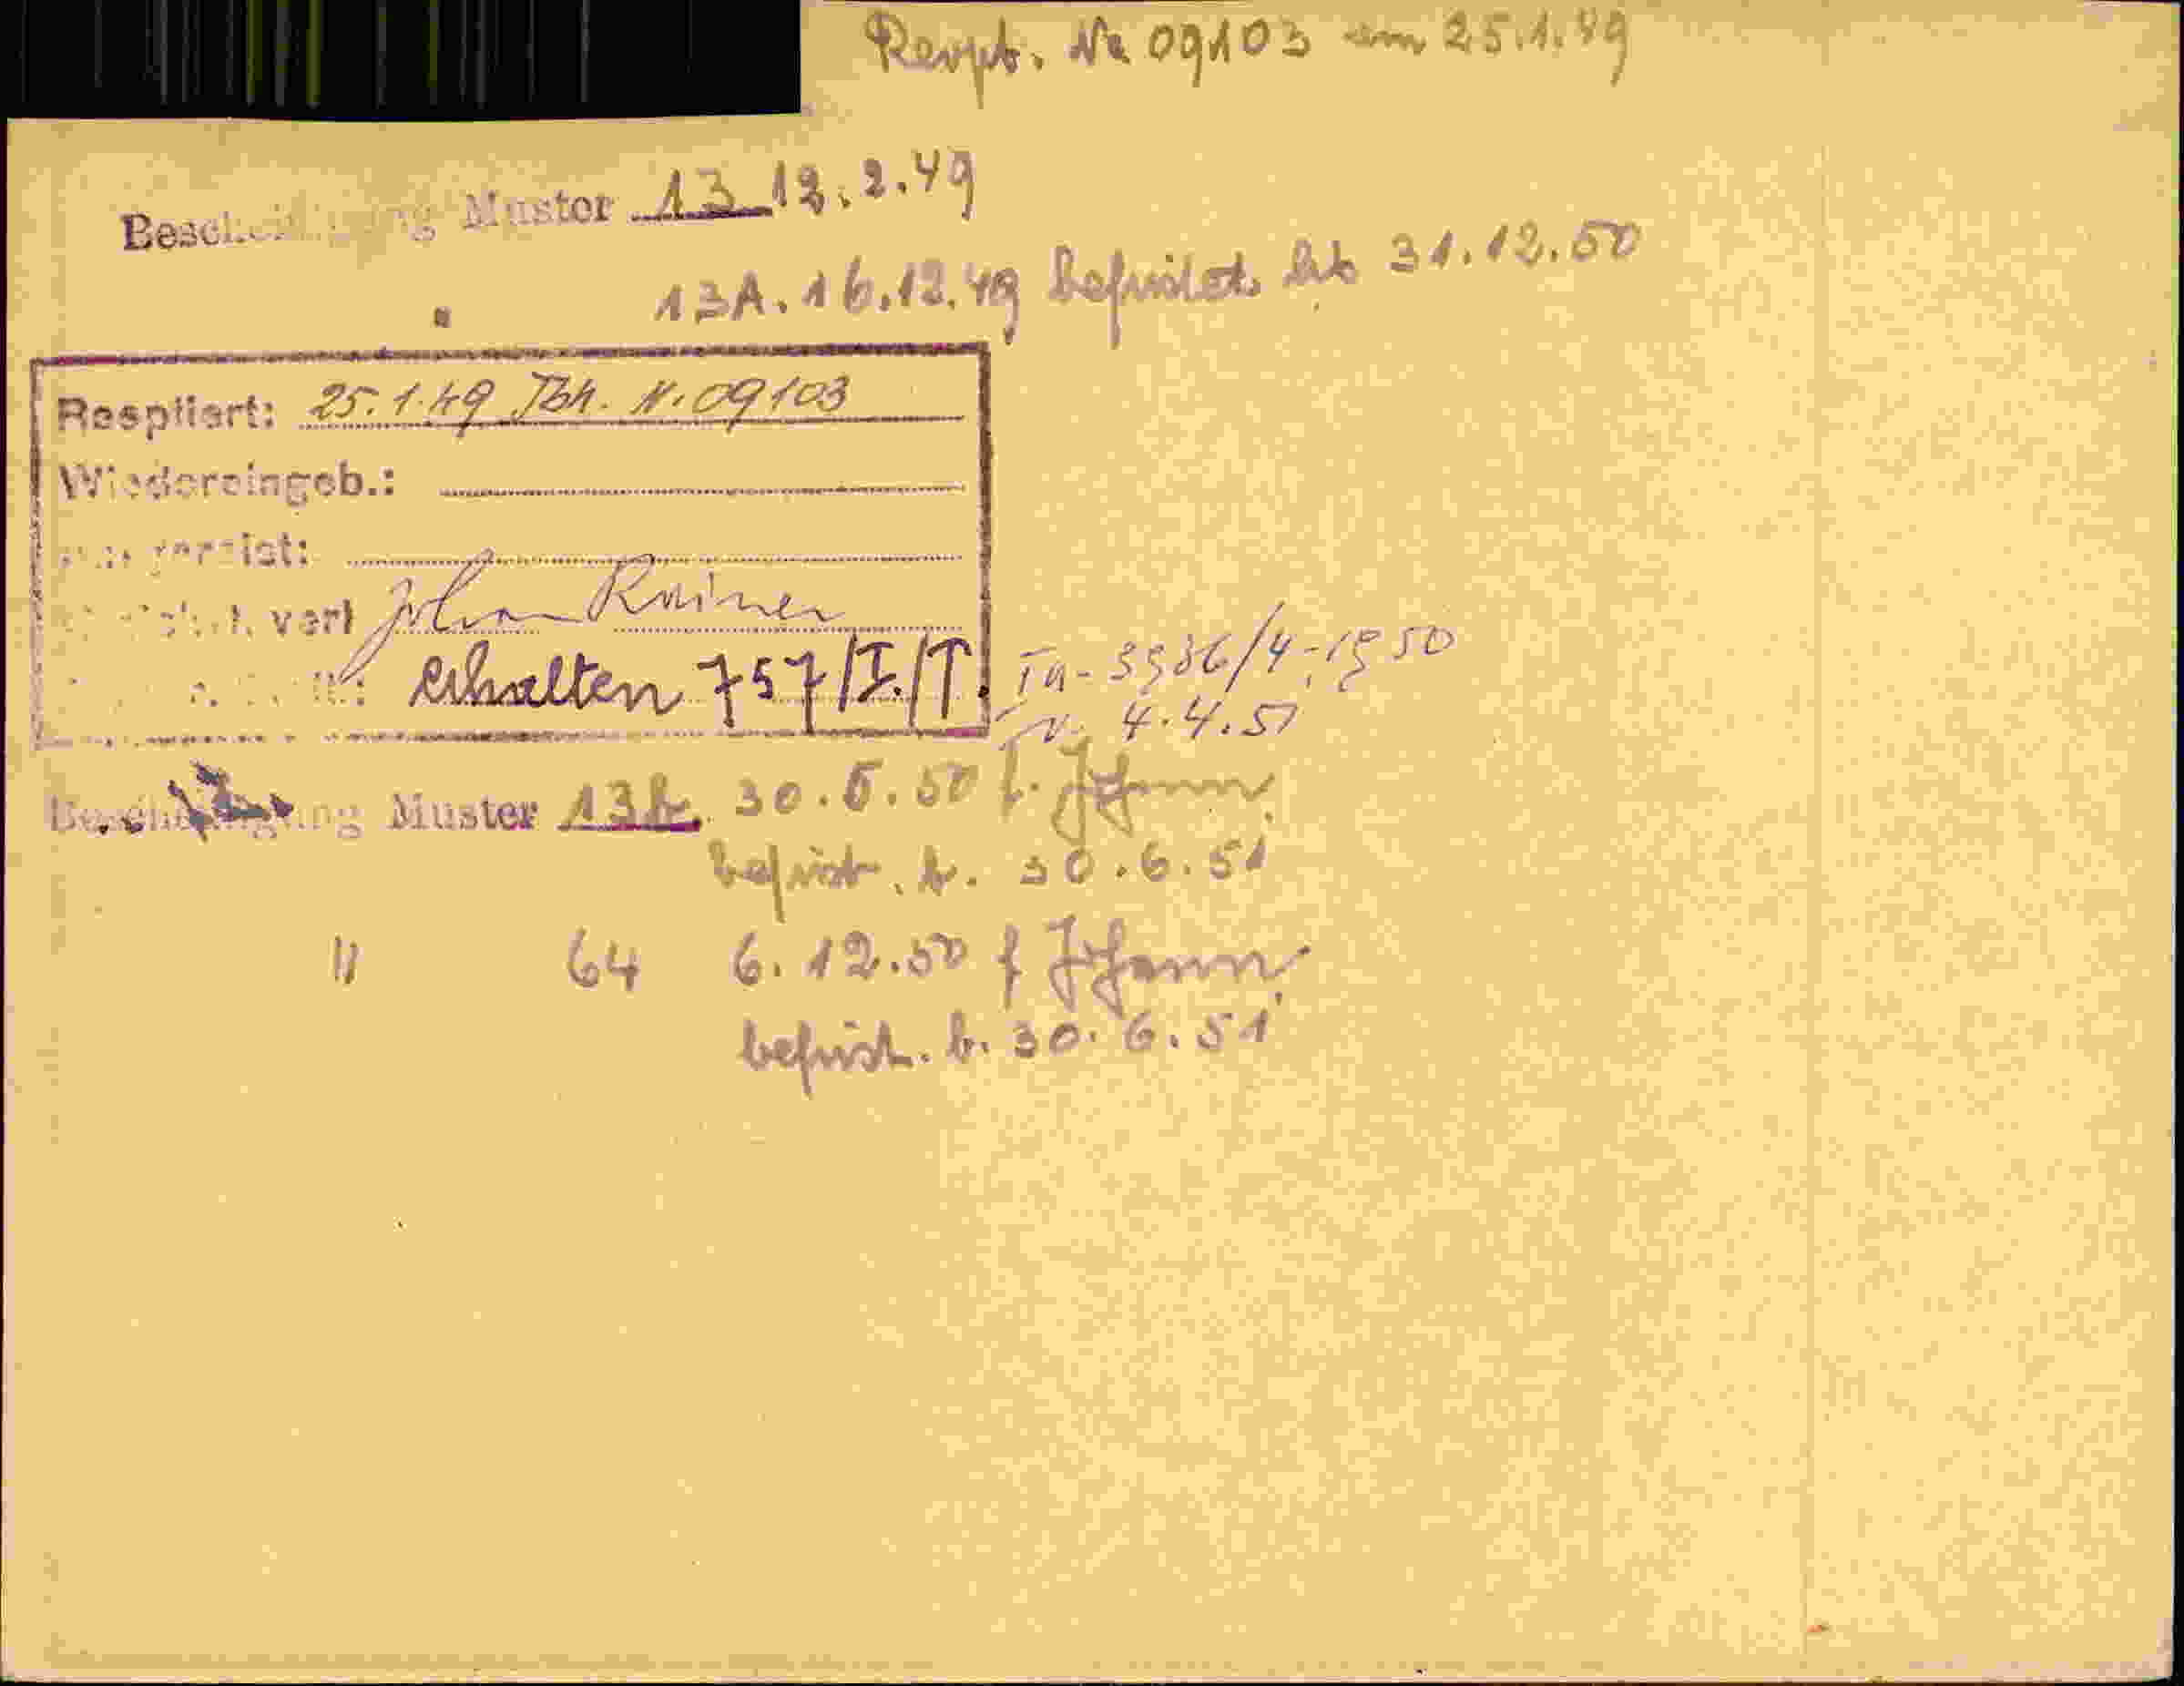 Respt. No 09103 am 25.1.49
Bescheinigung Muster 13 12.2.49
13A. 16.12.49 befristet bis 31.12.50
Resptiert: 25.1.49 Tbh. N. 09103
Wiedereingeb.:
verl Johan Rainer
erhalten 757/I./T.
Ia-3936/4-1950
v. 4.4.51
Bescheinigung Muster 13b. 30.6.50 f. Johann
befrist. b. 30.6.51
" 64 6.12.50 f Johann
befrist. b. 30.6.51